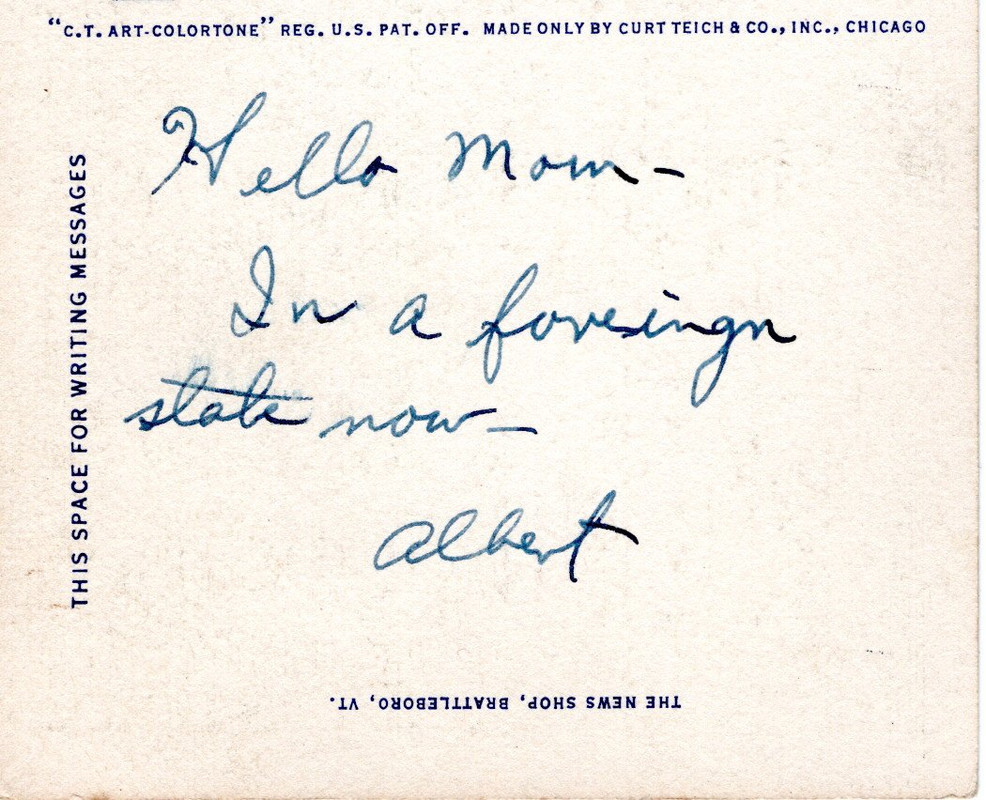 “C.T. ART-COLORTONE” REG. U.S. PAT. OFF. MADE ONLY BY CURT TEICH & CO., INC., CHICAGO
THIS SPACE FOR WRITING MESSAGES
Hello Mom –
In a foreingn
state now –
Albert
THE NEWS SHOP, BRATTLEBORO, VT.